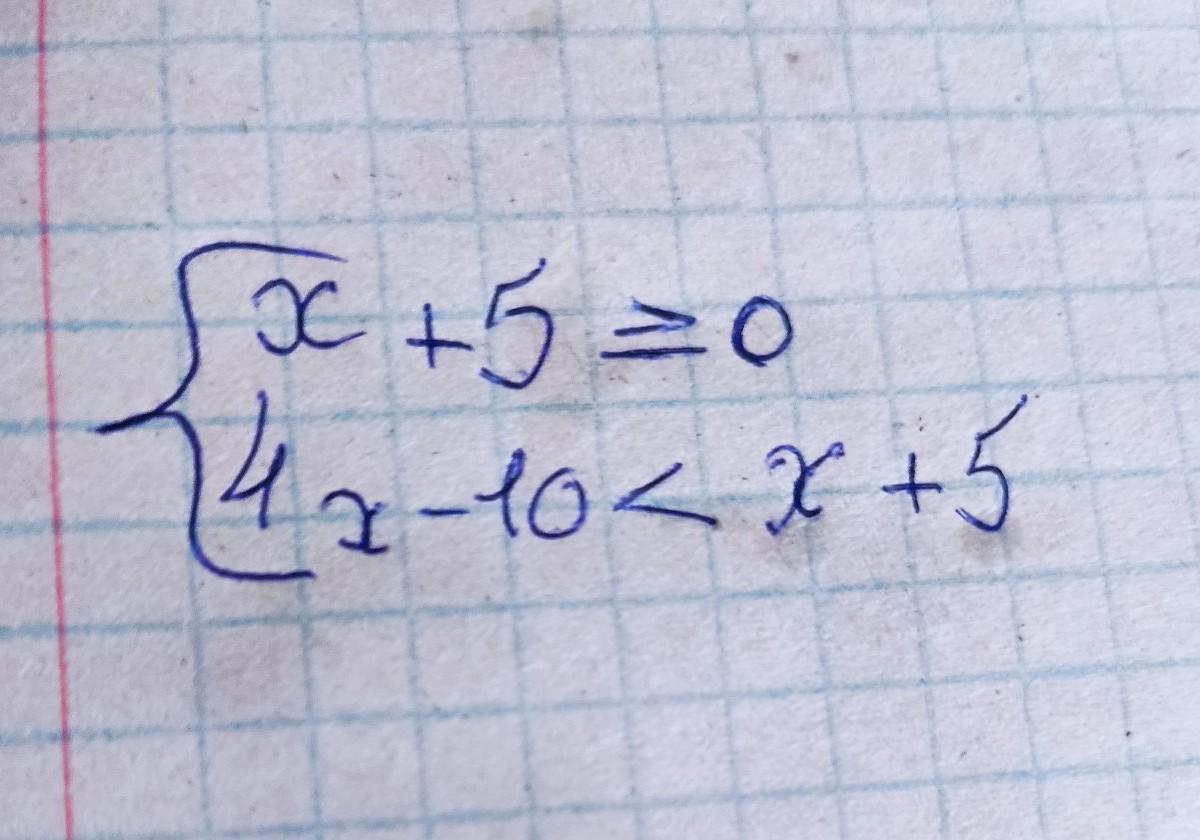 x + 5 ≥ 0
4x - 10 < x + 5